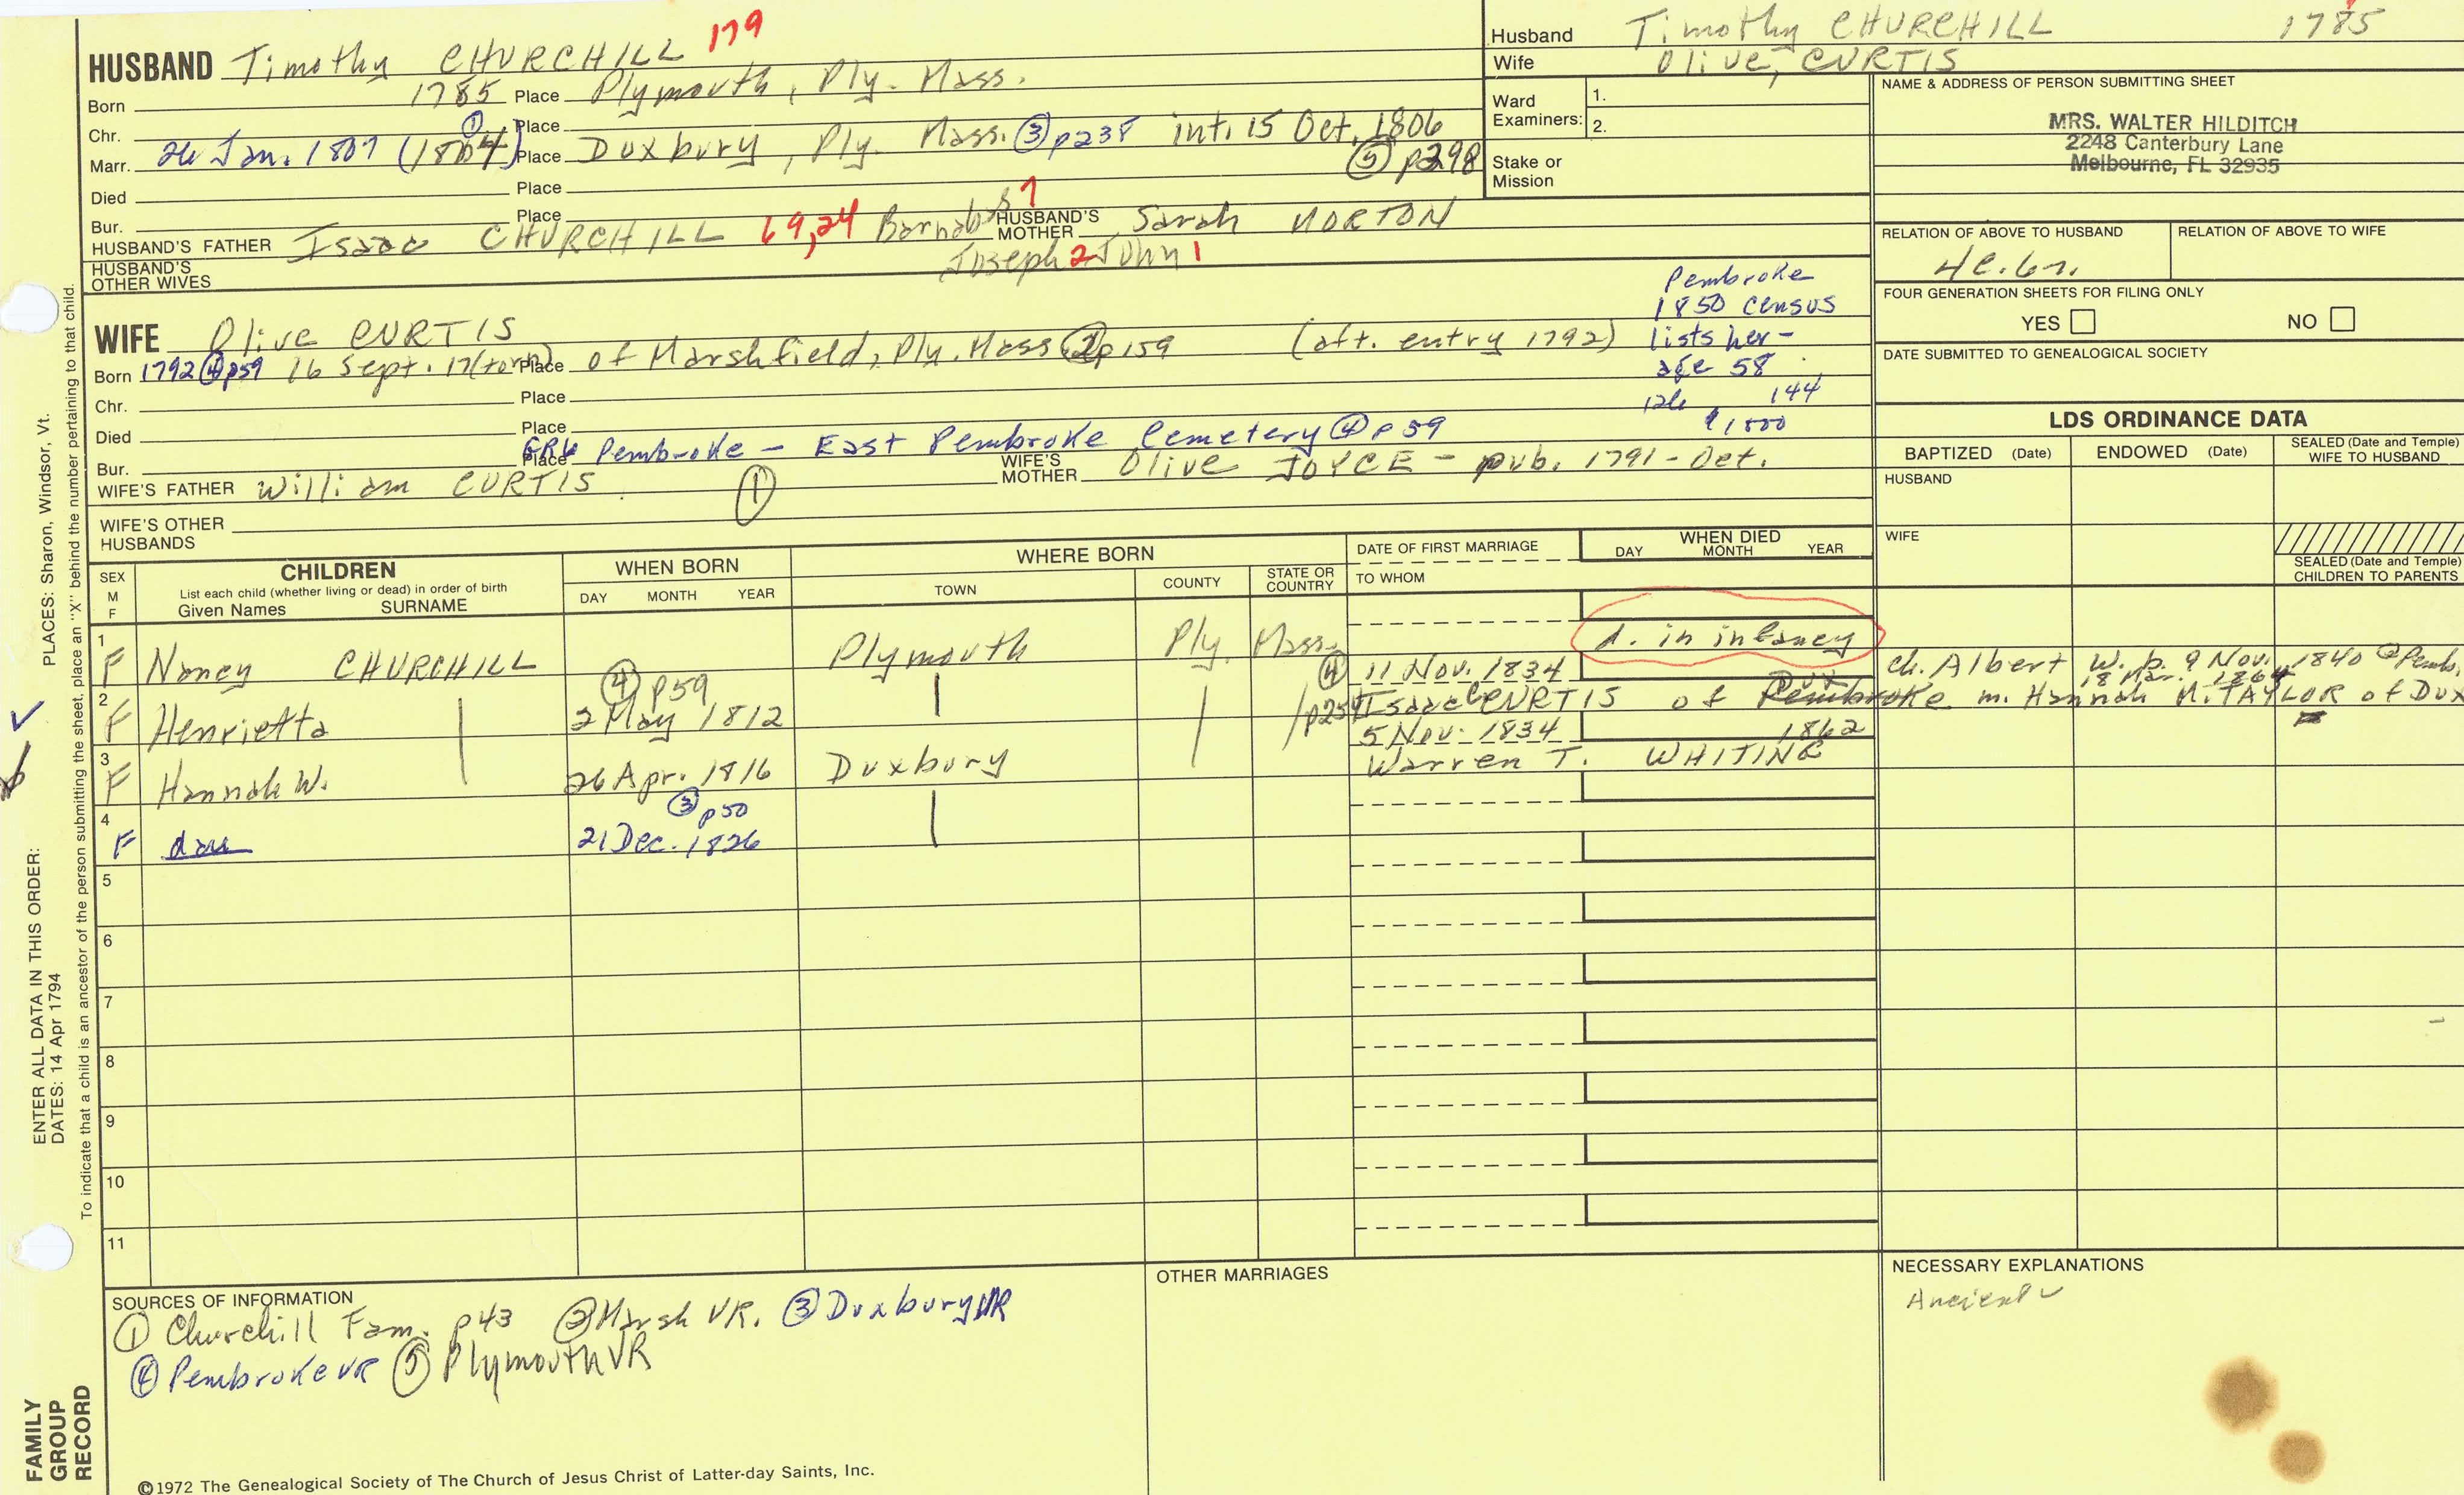 HUSBAND Timothy CHURCHILL 179
Born 1785 Place Plymouth, Ply. Mass.
Chr. Place
Marr. 24 Jan. 1807 (1804) ① Place Duxbury, Ply. Mass. ③ p238 int. 15 Oct. 1806
⑤ p298
Died Place
Bur. Place
HUSBAND'S FATHER Isaac CHURCHILL 69,24 Barnabas 7 HUSBAND'S MOTHER Sarah NORTON
Joseph 2 John 1
HUSBAND'S OTHER WIVES
Husband Timothy CHURCHILL 1785
Wife Olive, CURTIS
Ward Examiners: 1.
2.
Stake or Mission
NAME & ADDRESS OF PERSON SUBMITTING SHEET
MRS. WALTER HILDITCH
2248 Canterbury Lane
Melbourne, FL 32935
RELATION OF ABOVE TO HUSBAND
RELATION OF ABOVE TO WIFE
FOUR GENERATION SHEETS FOR FILING ONLY
YES NO
DATE SUBMITTED TO GENEALOGICAL SOCIETY
WIFE Olive CURTIS
Born 1792 ④ p59 16 Sept. 17(torn) Place of Marshfield, Ply. Mass ② p159 (aft. entry 1792)
Pembroke
1850 census
lists her -
age 58
144
$1,000
Chr. Place
Died Place
Bur. Place GR6 Pembroke - East Pembroke Cemetery ④ p59
WIFE'S FATHER William CURTIS ① WIFE'S MOTHER Olive JOYCE - pub. 1791 - Oct.
WIFE'S OTHER HUSBANDS
LDS ORDINANCE DATA
BAPTIZED (Date) ENDOWED (Date) SEALED (Date and Temple) WIFE TO HUSBAND
HUSBAND
WIFE
SEALED (Date and Temple) CHILDREN TO PARENTS
SEX M F
CHILDREN
List each child (whether living or dead) in order of birth
Given Names SURNAME
WHEN BORN
DAY MONTH YEAR
WHERE BORN
TOWN COUNTY STATE OR COUNTRY
DATE OF FIRST MARRIAGE
TO WHOM
WHEN DIED
DAY MONTH YEAR
1 F Nancy CHURCHILL Plymouth Ply. Mass. d. in infancy
2 F Henrietta ④ p59 2 May 1812 ④ 11 Nov. 1834
Isaac CURTIS of Pembroke Dux
ch. Albert W. b. 9 Nov. 1840 @ Pemb.
18 Mar. 1864
m. Hannah M. TAYLOR of Dux
3 F Hannah W. 26 Apr. 1816 Duxbury 5 Nov. 1834 1862
Warren T. WHITING
4 F dau ③ p50 21 Dec. 1826
5
6
7
8
9
10
11
SOURCES OF INFORMATION
① Churchill Fam. p43 ② Marsh VR. ③ Duxbury VR
④ Pembroke VR ⑤ Plymouth VR
OTHER MARRIAGES
NECESSARY EXPLANATIONS
©1972 The Genealogical Society of The Church of Jesus Christ of Latter-day Saints, Inc.
PLACES: Sharon, Windsor, Vt.
ENTER ALL DATA IN THIS ORDER:
DATES: 14 Apr 1794
To indicate that a child is an ancestor of the person submitting the sheet, place an "X" behind the number pertaining to that child.
FAMILY
GROUP
RECORD